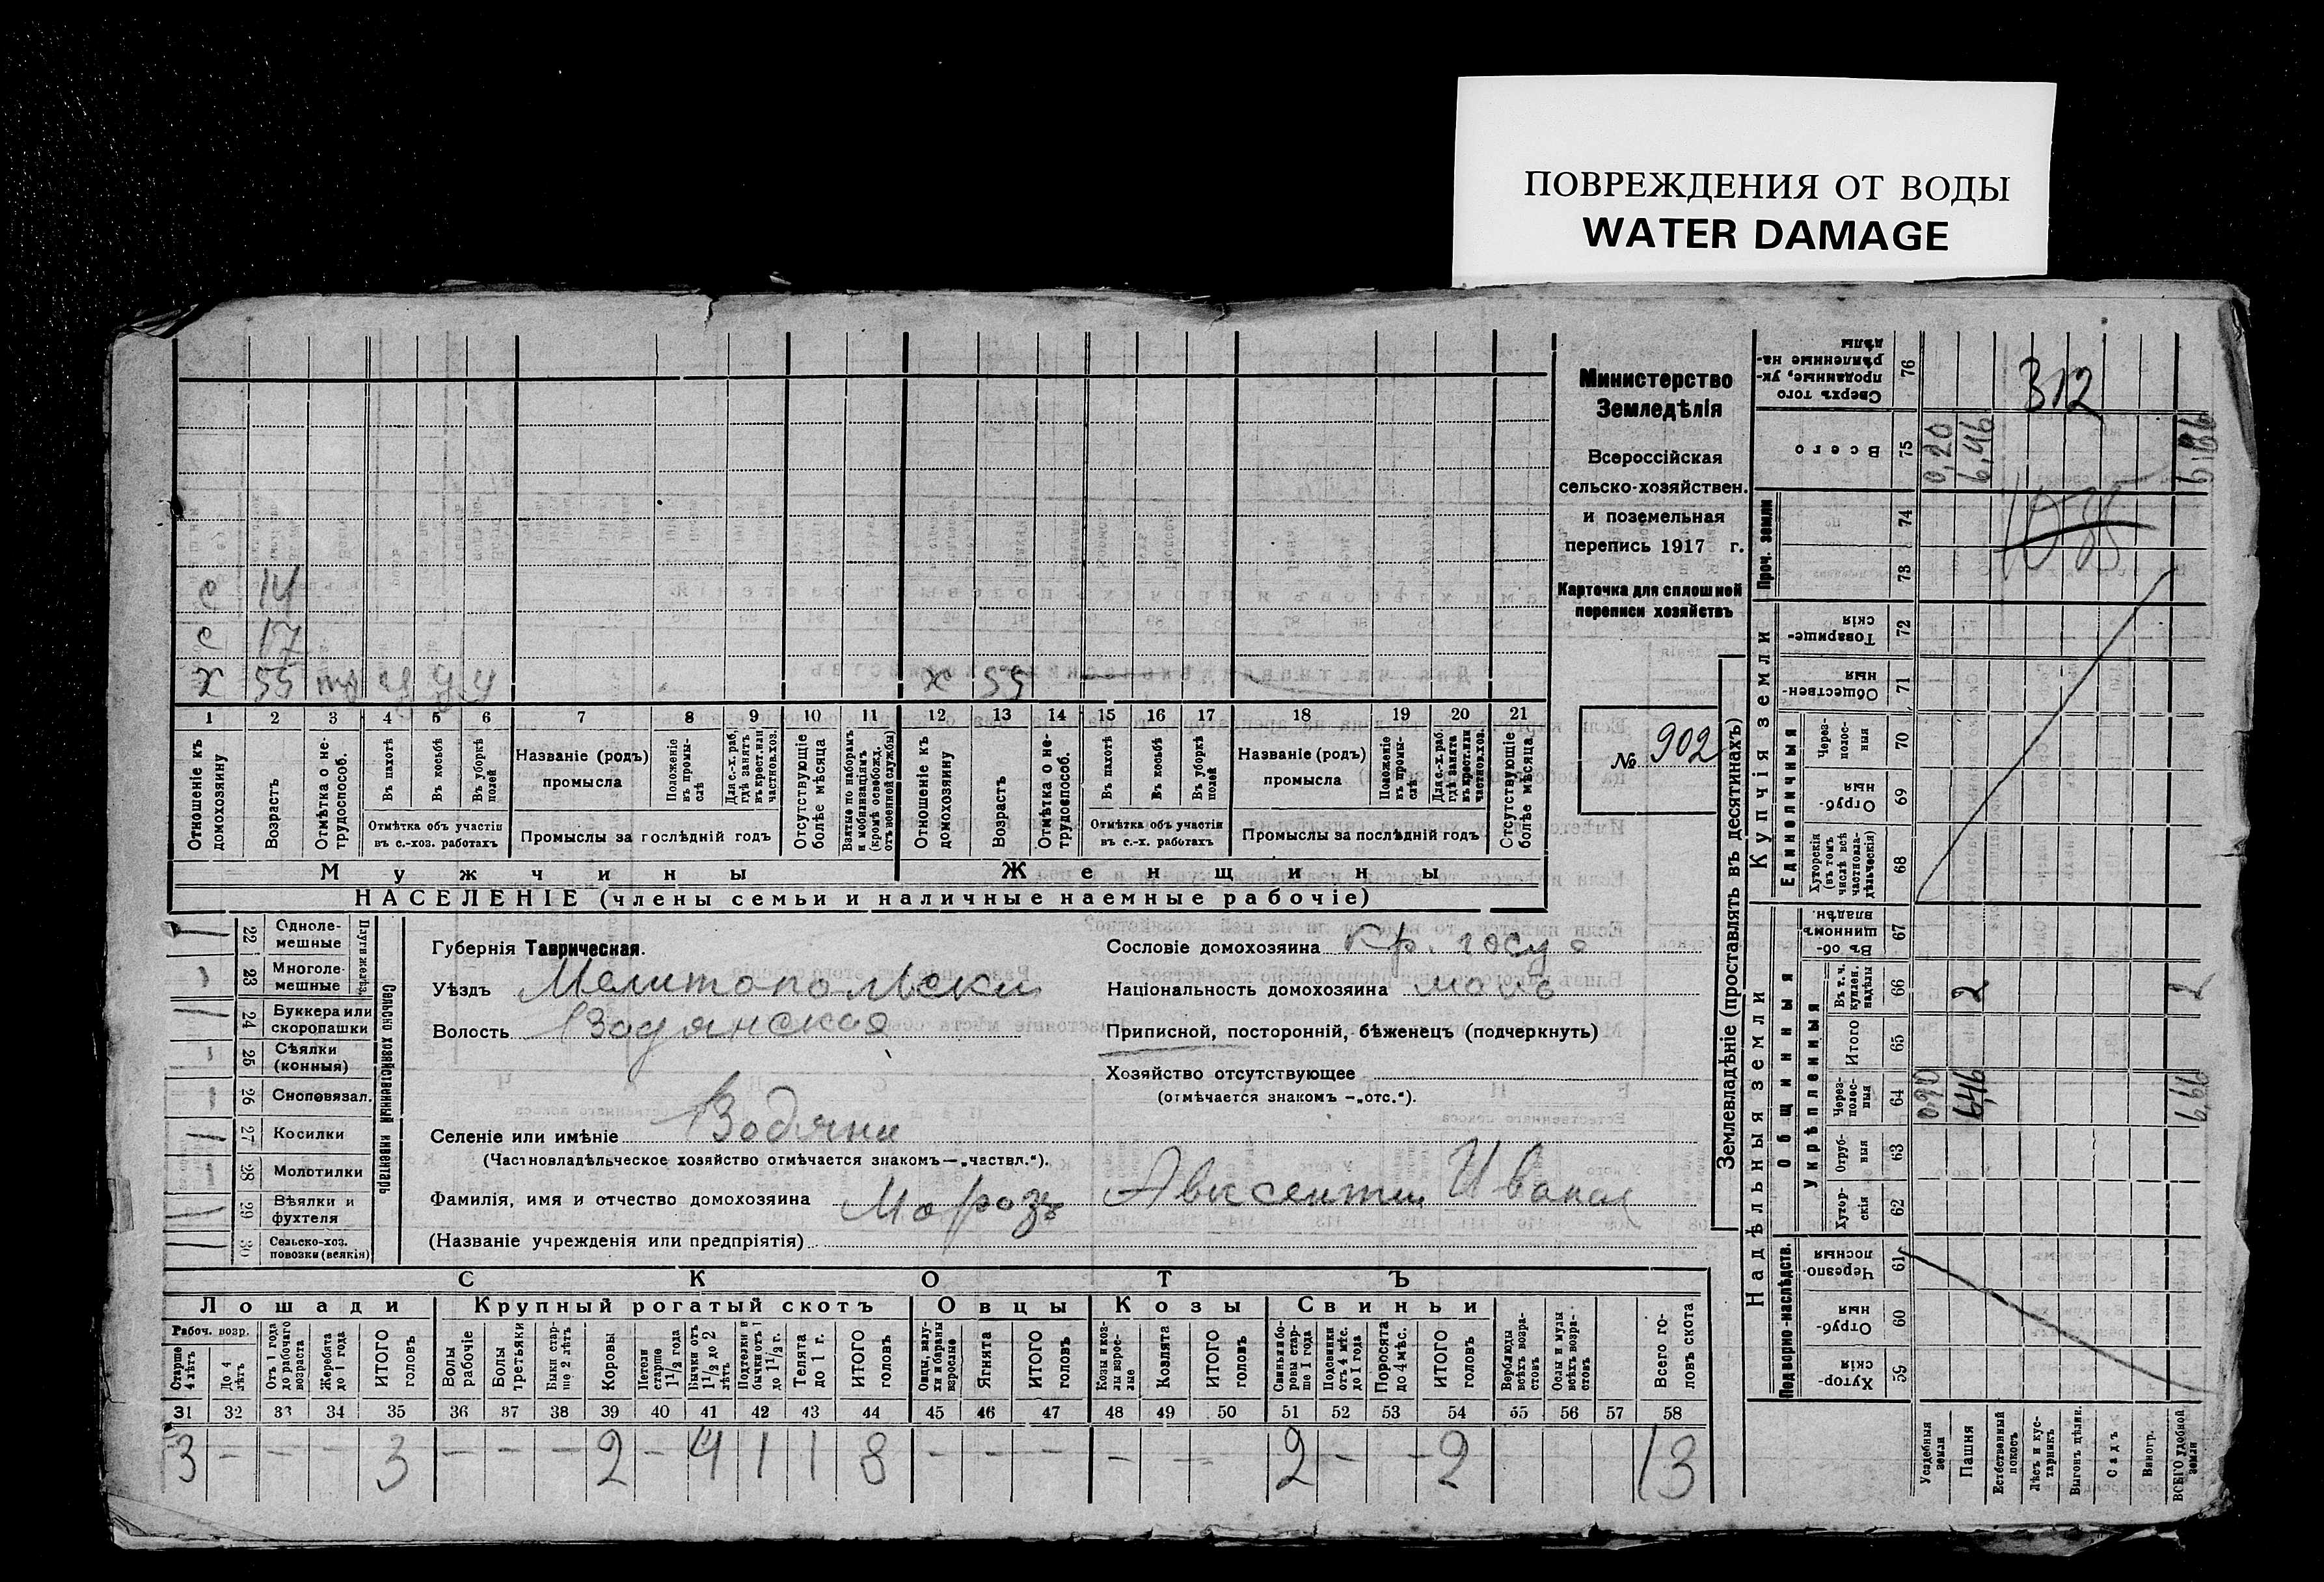 ПОВРЕЖДЕНИЯ ОТ ВОДЫ
WATER DAMAGE
Министерство
Земледѣлія
Всероссійская
сельско-хозяйствен.
и поземельная
перепись 1917 г.
Карточка для сплошной
переписи хозяйствъ
№ 902
с 14
с 17
х 55 у у у х 55
1 2 3 4 5 6 7 8 9 10 11 12 13 14 15 16 17 18 19 20 21
Отношеніе къ домохозяину
Возрастъ
Отмѣтка о не-трудоспособ.
Въ пахотѣ
Въ косьбѣ
Въ уборкѣ полей
Отмѣтка объ участіи въ с.-хоз. работахъ
Названіе (родъ) промысла
Положеніе въ промы-слѣ
Для с.-х. раб., гдѣ занятъ въ крест. или частнов. хоз.
Промыслы за послѣдній годъ
Отсутствующіе болѣе мѣсяца
Взятые по наборамъ и мобилизаціямъ (кромѣ освобожд. отъ военной службы)
Отношеніе къ домохозяину
Возрастъ
Отмѣтка о не-трудоспособ.
Въ пахотѣ
Въ косьбѣ
Въ уборкѣ полей
Отмѣтка объ участіи въ с.-х. работахъ
Названіе (родъ) промысла
Положеніе въ промы-слѣ
Для с.-х. раб. гдѣ занята въ крест. или частнов. хоз.
Промыслы за послѣдній годъ
Отсутствующіе болѣе мѣсяца
Мужчины Женщины
НАСЕЛЕНІЕ (члены семьи и наличные наемные рабочіе)
Сельско хозяйственный инвентарь
Плуги желѣз.
22 Одноле-мешные
23 Многоле-мешные
24 Буккера или скоропашки
25 Сѣялки (конныя)
26 Сноповязал.
27 Косилки
28 Молотилки
29 Вѣялки и фухтеля
30 Сельско-хоз. повозки (всякія)
Губернія Таврическая.
Уѣздъ Мелитопольски
Волость Водянская
Селеніе или имѣніе Водяни
(Частновладѣльческое хозяйство отмѣчается знакомъ—„частвл.“).
Фамилія, имя и отчество домохозяина Морозъ Авксентий Иванов
(Названіе учрежденія или предпріятія)
Сословіе домохозяина Кр. госуд
Національность домохозяина малъ
Приписной, посторонній, бѣженецъ (подчеркнуть)
Хозяйство отсутствующее
(отмѣчается знакомъ —„отс.“).
СКОТЪ
Лошади Крупный рогатый скотъ Овцы Козы Свиньи
Рабоч. возр.
Старше 4 лѣтъ
До 4 лѣтъ
Отъ 1 года до рабочаго возраста
Жеребята до 1 года
ИТОГО головъ
Волы рабочіе
Волы третьяки
Быки стар-ше 2 лѣтъ
Коровы
Нетели старше 1 1/2 года
Бычки отъ 1 1/2 до 2 лѣтъ
Подтелки и бычки отъ 1 до 1 1/2 г.
Телята до 1 г.
ИТОГО головъ
Овцы, валу-хи и бараны взрослые
Ягнята
ИТОГО головъ
Козы и коз-лы взрос-лые
Козлята
ИТОГО головъ
Свиньи и бо-ровы стар-ше 1 года
Подсвинки отъ 4 мѣс. до 1 года
Поросята до 4 мѣс.
ИТОГО головъ
Верблюды всѣхъ возра-стовъ
Ослы и мулы всѣхъ возра-стовъ
Всего го-ловъ скота
31 32 33 34 35 36 37 38 39 40 41 42 43 44 45 46 47 48 49 50 51 52 53 54 55 56 57 58
3 - - - 3 - - - 2 - 4 1 1 8 - - - - - - 2 - - 2 13
Землевладѣніе (проставлять въ десятинахъ)
Надѣльныя земли Купчія земли
Подворно-наслѣдств. Общинныя Укрѣпленныя Единоличныя Проч. земли
59 Хутор-скія
60 Отруб-ныя
61 Черезпо-лосныя
62 Хутор-скія
63 Отруб-ныя
64 Через-полос-ныя
65 Итого
66 Въ т. ч. куплен. надѣлы
67 Въ об-щинномъ владѣн.
68 Хуторскія (въ томъ числѣ всѣ частновла-дѣльческія)
69 Отруб-ныя
70 Через-полос-ныя
71 Обществен-ныя
72 Товарище-скія
73
74
75 Всего
76 Сверхъ того проданные, ук-рѣпленные на-дѣлы
Усадебныя земли 0,20
Пашня 6,46 2 6,46
Естественный покосъ
Лѣсъ и кус-тарникъ
Выгонъ цѣлин.
Садъ
Виногр.
ВСЕГО удобной земли 6,66 2
312